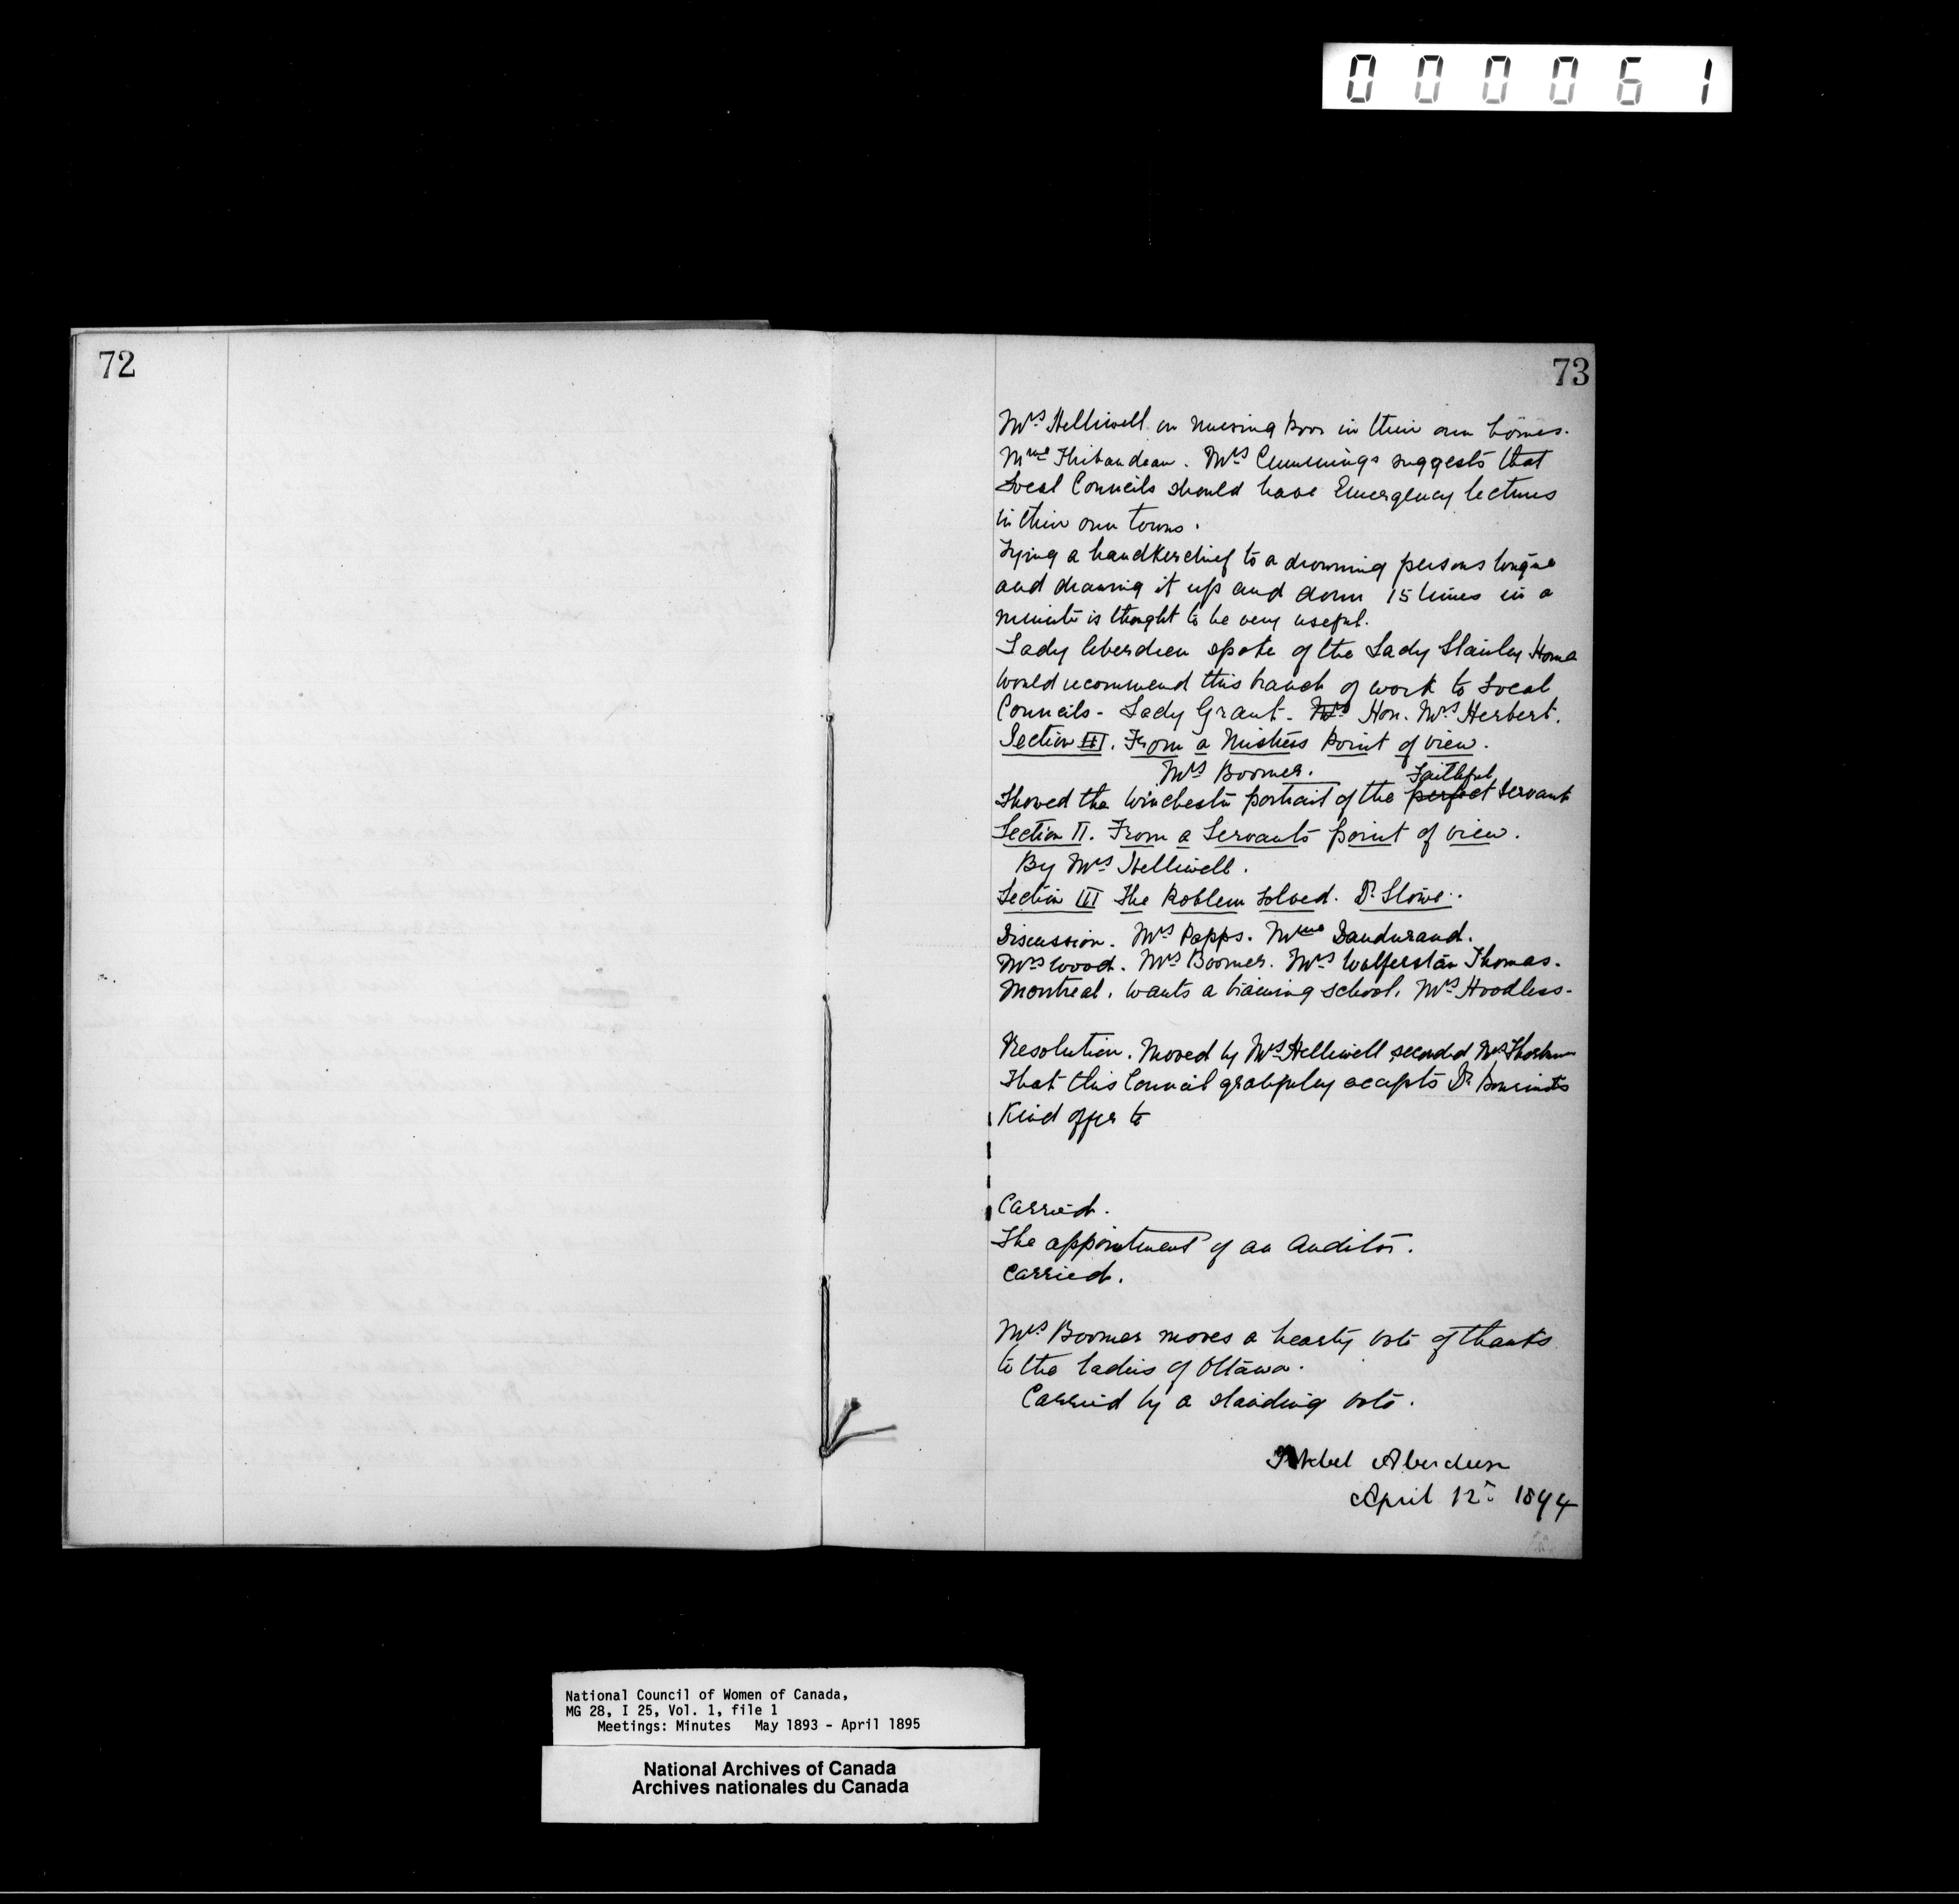 000061
72
73
Mrs Helliwell on nursing Poor in their own homes.
Mme Thibaudeau. Mrs Cummings suggests that
Local Councils should have Emergency lectures
in their own towns.
Tying a handkerchief to a drowning persons tongue
and drawing it up and down 15 times in a
minute is thought to be very useful.
Lady Aberdeen spoke of the Lady Stanley Home
Would recommend this branch of work to Local
Councils - Lady Grant - Mrs Hon. Mrs Herbert.
Section III. From a Mistress Point of view.
Mrs Boomer.
Faithful
Showed the Winchester portrait of the perfect Servant
Section II. From a Servants point of view.
By Mrs Helliwell.
Section III The Problem solved. Dr Stowe.
Discussion. Mrs Papps. Mme Dandurand.
Mrs Wood. Mrs Boomer. Mrs Wolferstan Thomas.
Montreal. Wants a training school. Mrs Hoodless.
Resolution. Moved by Mrs Helliwell seconded Mrs
That this Council gratefully accepts Dr Bourinots
Kind offer to
Carried.
The appointment of an Auditor.
Carried.
Mrs Boomer moves a hearty vote of thanks
to the ladies of Ottawa.
Carried by a standing vote.
Ishbel Aberdeen
April 12th 1894
National Council of Women of Canada,
MG 28, I 25, Vol. 1, file 1
Meetings: Minutes May 1893 - April 1895
National Archives of Canada
Archives nationales du Canada